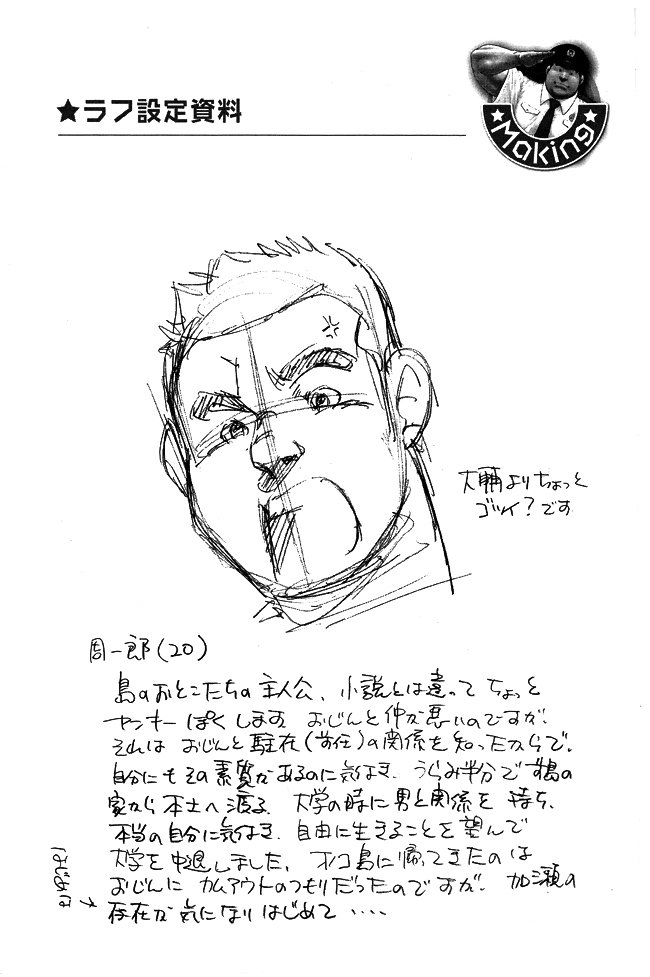 ★ラフ設定資料
★Making★
大輔よりちょっと
ゴツイ？です
周一郎(20)
島のおとこたちの主人公、小説とは違って ちょっと
ヤンキーぽくします おじんと仲が悪いのですが、
それは おじんと駐在(前任)の関係を知ったからで、
自分にもその素質があるのに気付き、うらみ半分で 島の
家から本土へ渡る 大学の時に男と関係を持ち、
本当の自分に気付き、自由に生きることを望んで
大学を中退しました、オノコ島に帰ってきたのは
おじんに カムアウトのつもりだったのですが、加瀬の
はじめは→存在が気になりはじめて ・・・・